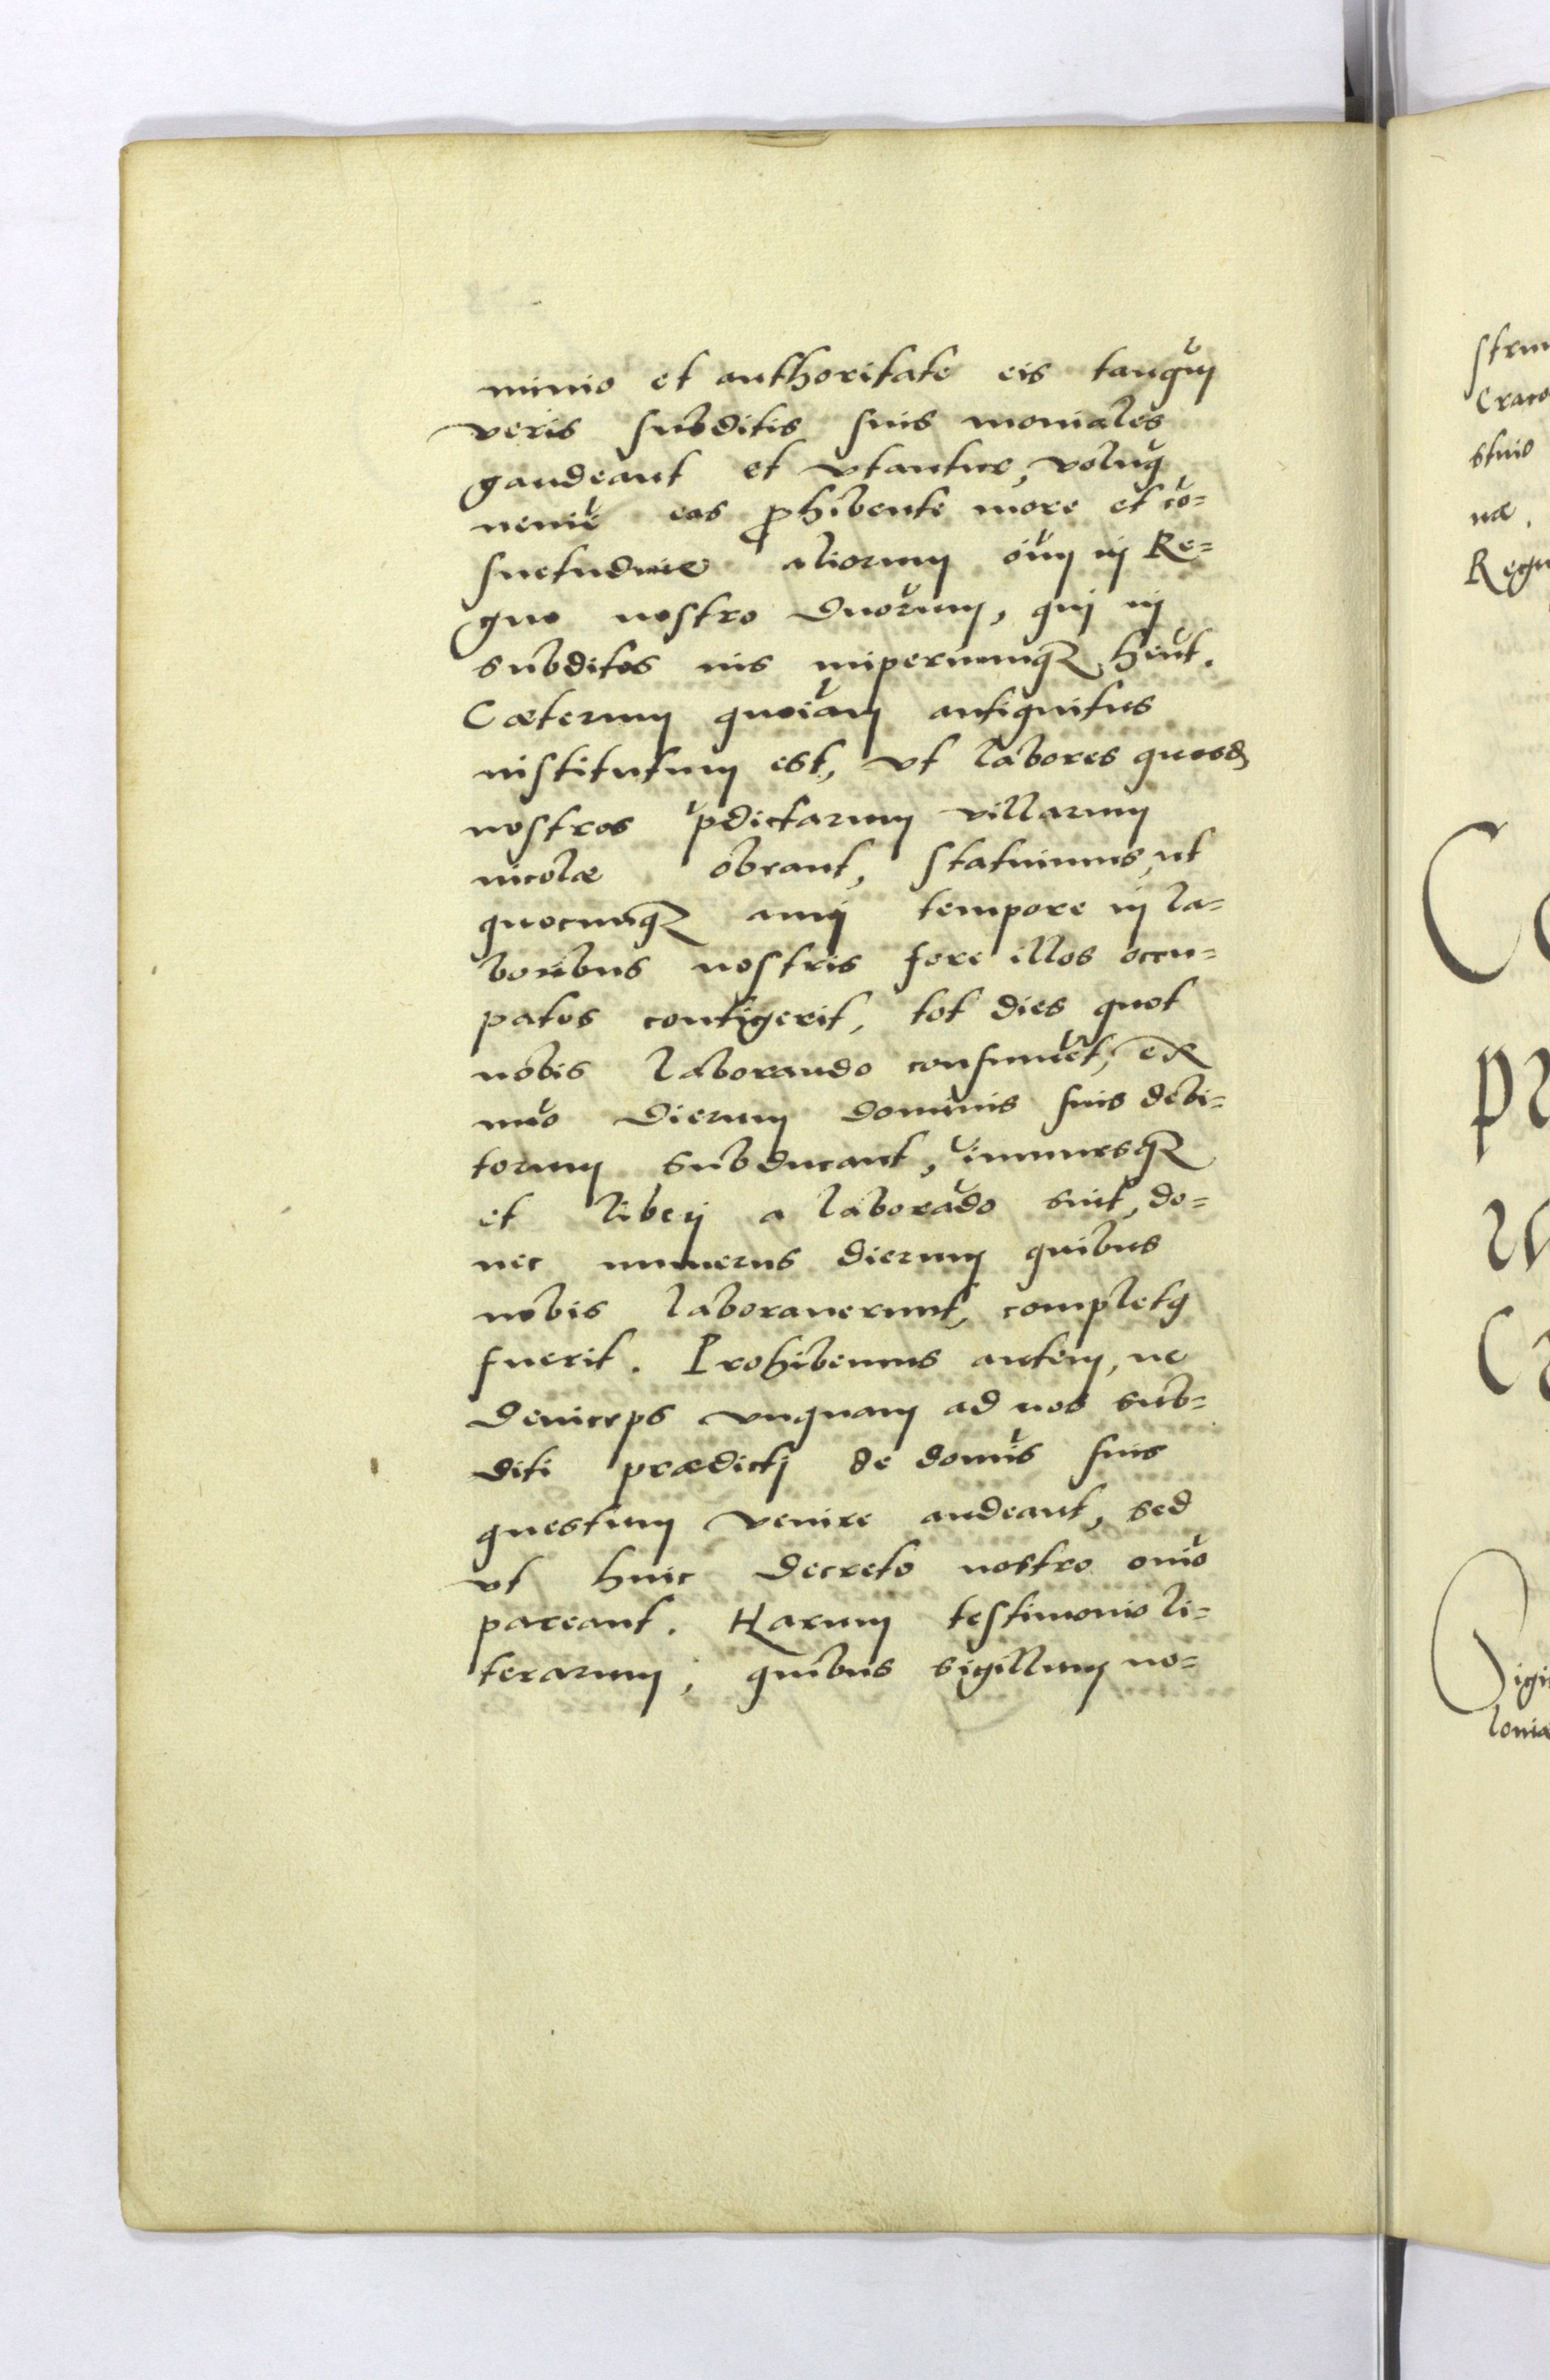 minio et authoritate eis tanqȝ
veris subditis suis moniales
gaudeant et vtantur, volumq
nemīe eas ꝓhibente more et cō=
suetudine aliorum oīm in Re=
gno nostro dnorum, qui in
subditos ius imperiumqꝫ hn̄t.
Cæterum quoīam antiquitus
institutum est, vt labores quosd
nostros p̄dictarum villarum
incolæ obeant, statuimus, ut
quocunqꝫ anni tempore in la=
boribus nostris fore illos occu=
patos contigerit, tot dies quot
nobis laborando consumēt, ex
nūo dierum dominis suis debi=
torum subducant, immunesqꝫ
et liberi a laborādo sint, do=
nec numerus dierum quibus
nobis laborauerunt, completq
fuerit. Prohibemus autem, ne
deinceps vnquam ad nos sub=
diti prædicti de domīs suis
questum venire audeant, sed
vt huic decreto nostro omīo
pareant. Harum testimonio li=
terarum, quibus sigillum no=
stru
Craco
næ.
Regn
C
pr
C
igi
lonia